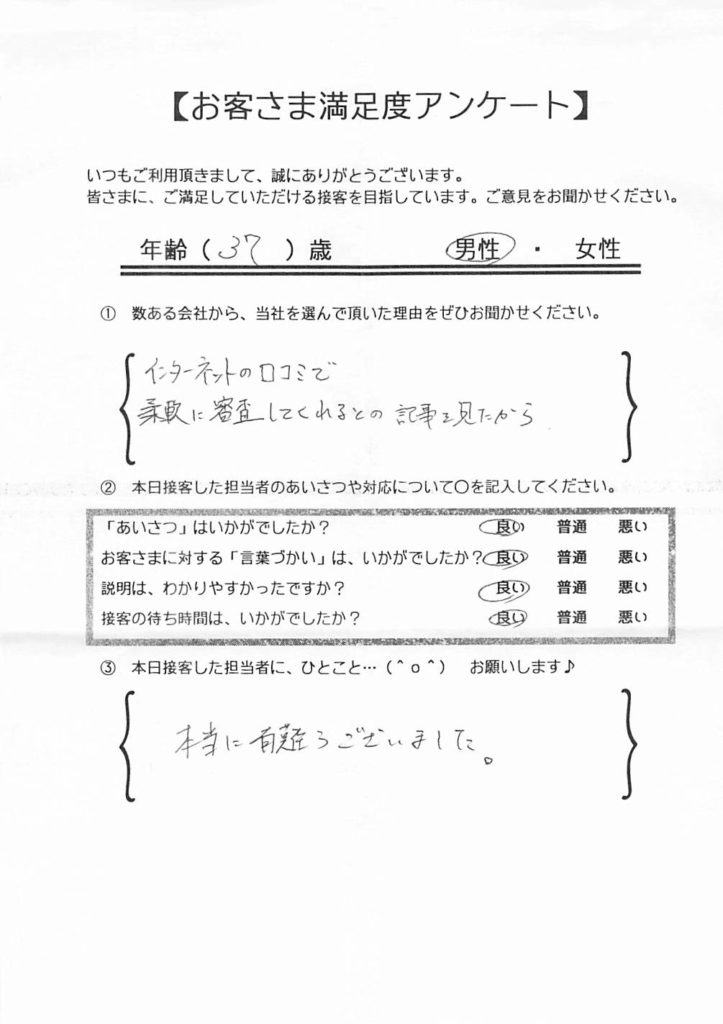 【お客さま満足度アンケート】
いつもご利用頂きまして、誠にありがとうございます。
皆さまに、ご満足していただける接客を目指しています。ご意見をお聞かせください。
年齢（ 37 ）歳 男性 ・ 女性
① 数ある会社から、当社を選んで頂いた理由をぜひお聞かせください。
インターネットの口コミで
柔軟に審査してくれるとの記事を見たから
② 本日接客した担当者のあいさつや対応について〇を記入してください。
「あいさつ」はいかがでしたか？ 良い 普通 悪い
お客さまに対する「言葉づかい」は、いかがでしたか？ 良い 普通 悪い
説明は、わかりやすかったですか？ 良い 普通 悪い
接客の待ち時間は、いかがでしたか？ 良い 普通 悪い
③ 本日接客した担当者に、ひとこと…（＾ｏ＾） お願いします♪
本当に有難うございました。